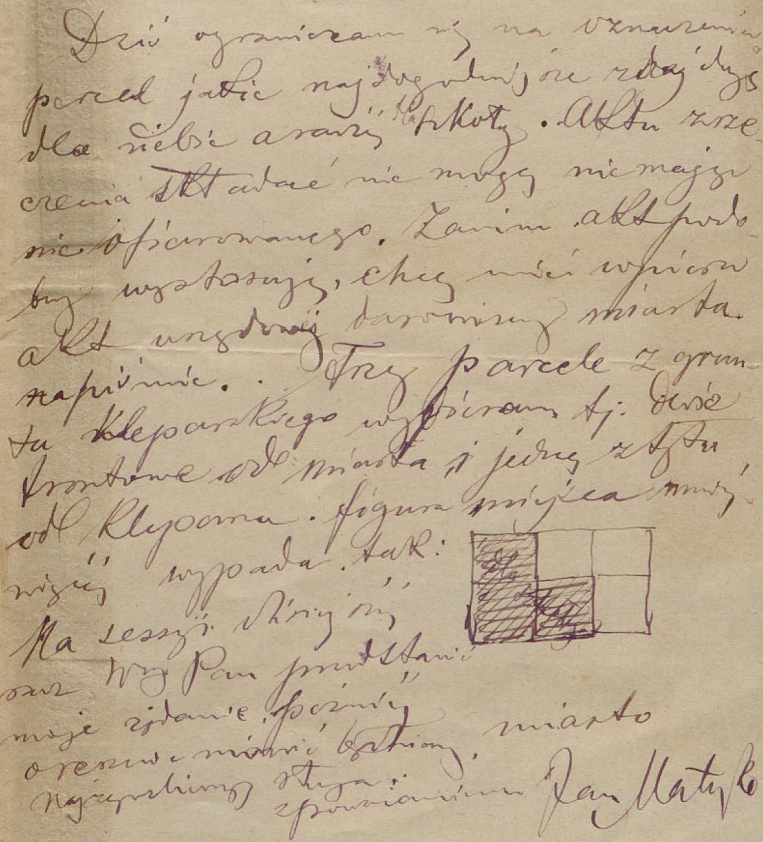 Dziś ograniczam się na oznaczeniu
parcel jakie najdogodniejsze zdają się
dla siebie a raczej dla szkoły. Aktu zrze-
czenia składać nie mogę nie mając
nic ofiarowanego. Zanim akt podo-
bny wystosuję, chcę mieć wpierw
akt urzędowej darowizny miasta
na piśmie. Trzy parcele z grun-
tu Kleparskiego wybieram tj. dwie
frontowe od miasta i jedną z tyłu
od Kleparza. figura miejsca mniej
więcej wypada tak:
dla
szkoły
Na sessyi dzisiejszej
racz Pan przedstawić
moje zdanie, później
o reszcie mówić będziemy. miasto
sługa.
z poważaniem Jan Matejko